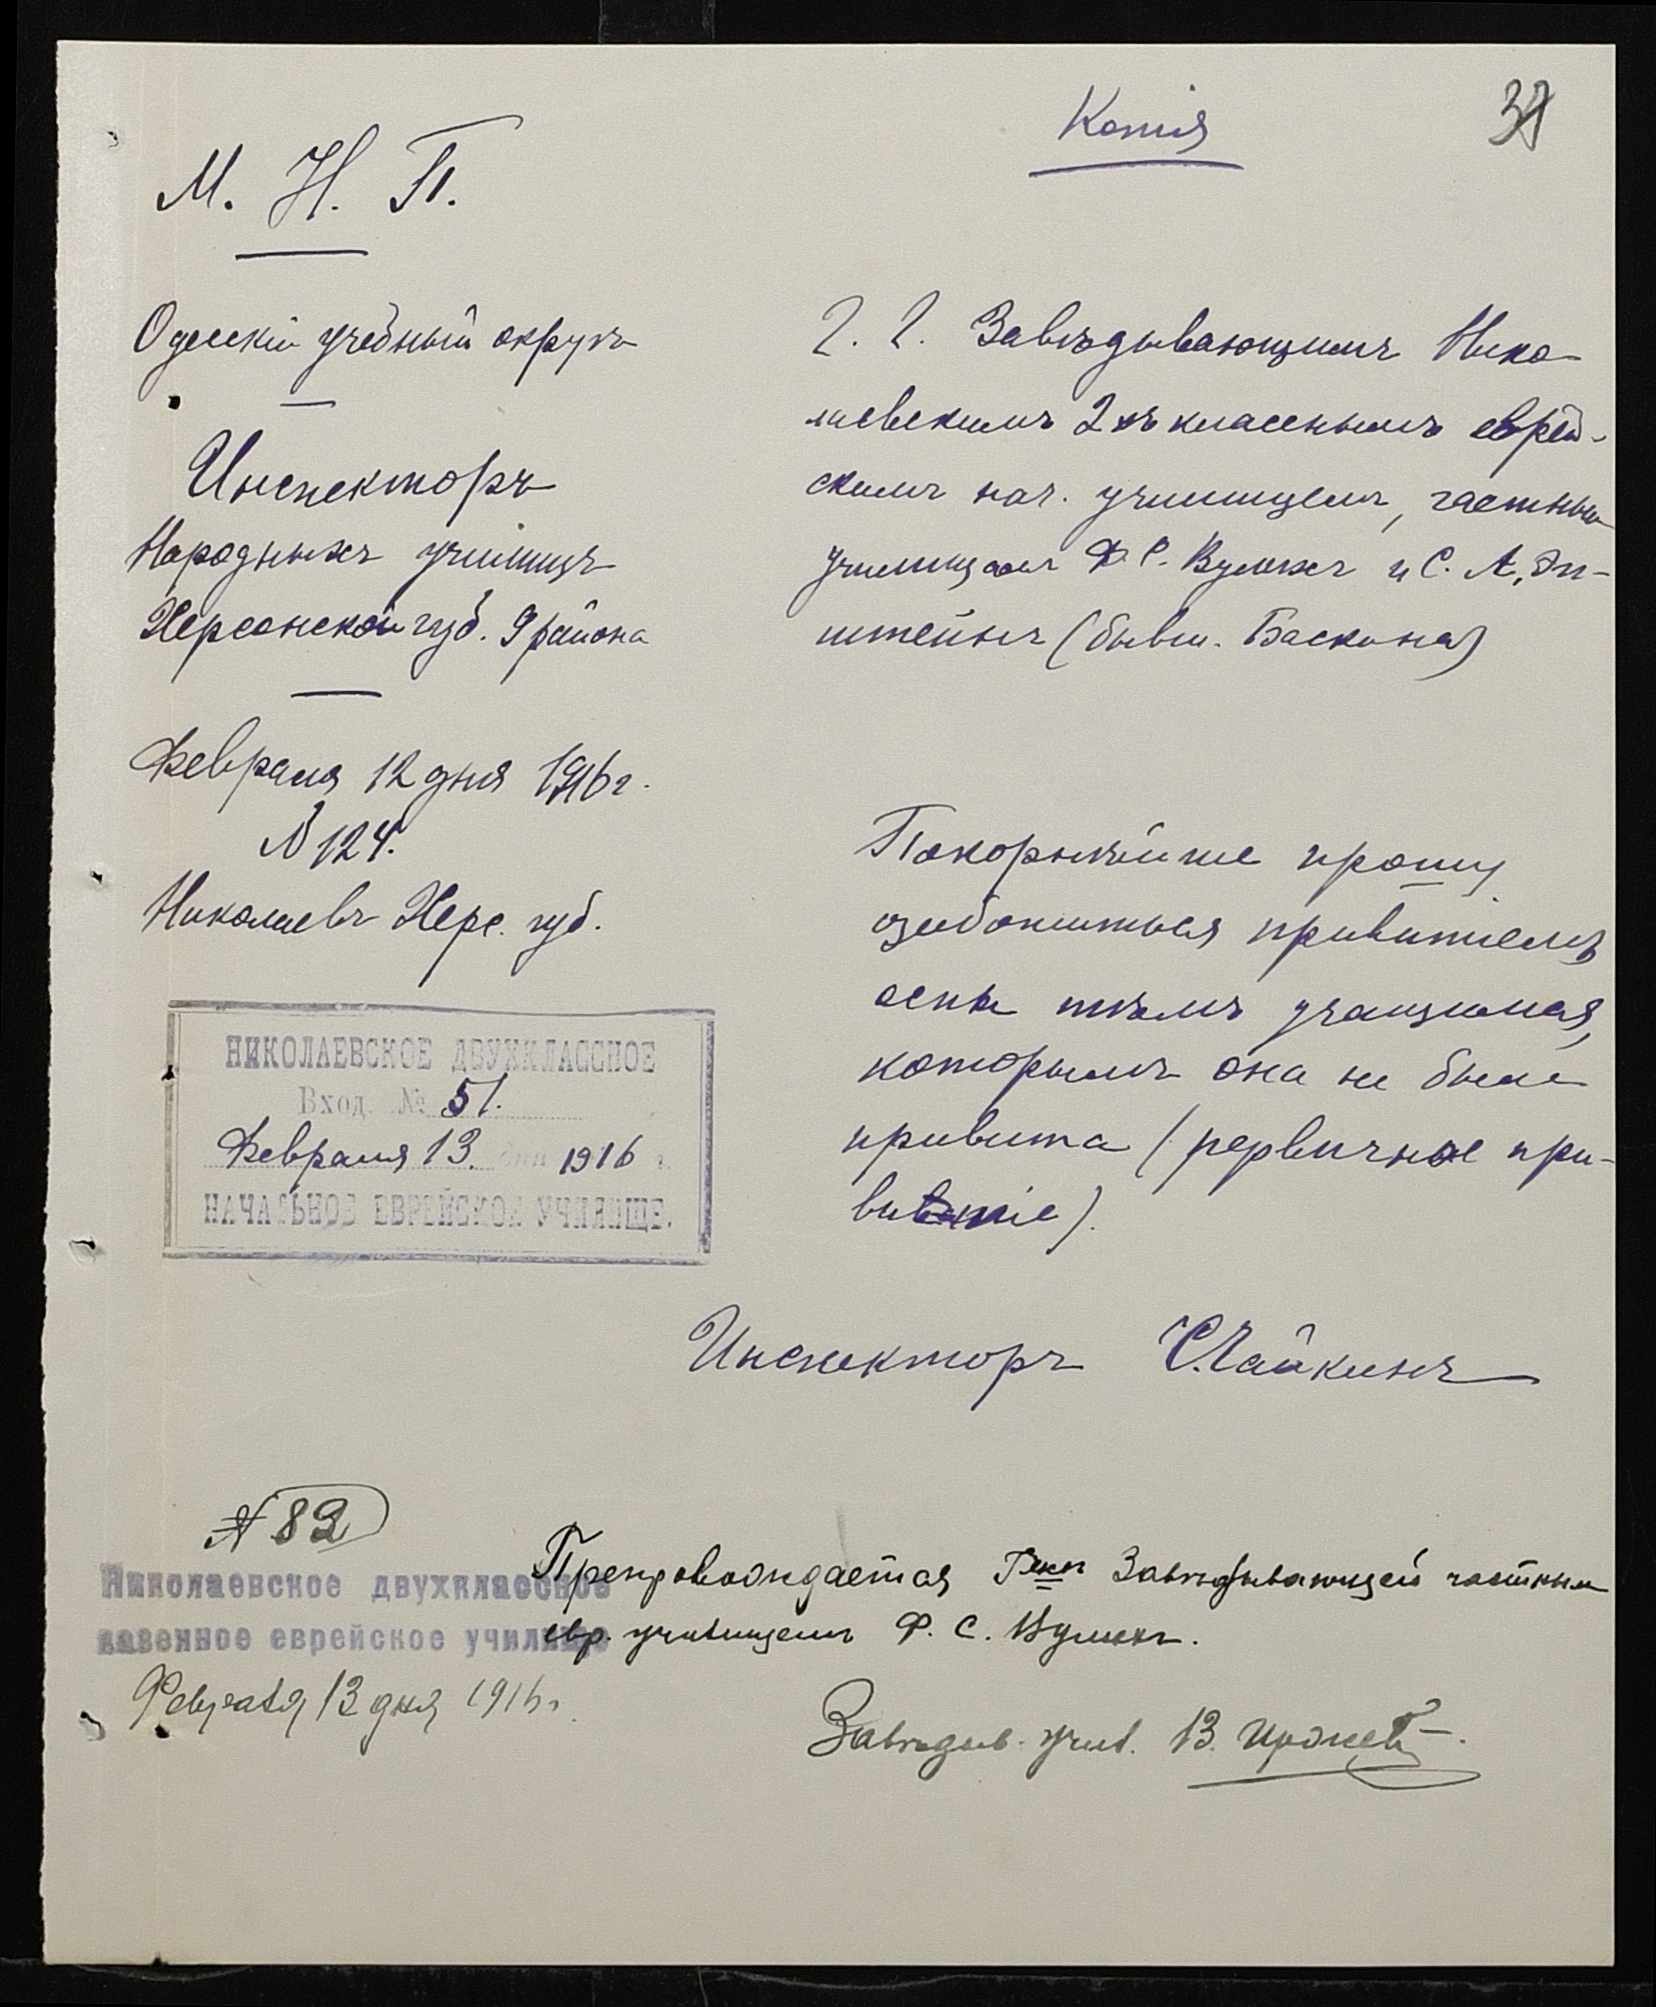 Копія
37
М. Н. П.
Одесскій учебный округъ
Инспекторъ
Народныхъ училищъ
Херсонской губ. 9 района
Февраля 12 дня 1916 г.
№ 124.
Николаевъ Херс. губ.
Г. Г. Завѣдывающимъ Нико-
лаевскимъ 2хъ класснымъ еврей-
скимъ нач. училищемъ, частным
училищам Ф. С. Вульхъ и С. А. Эп-
штейнъ (бывш. Баскина)
Покорнѣйше прошу
озаботиться привитіемъ
оспы тѣмъ учащимся,
которымъ она не была
привита (первичное при-
витіе).
НИКОЛАЕВСКОЕ ДВУХКЛАССНОЕ
Вход. № 51.
Февраля 13 дня 1916 г.
НАЧАЛЬНОЕ ЕВРЕЙСКОЕ УЧИЛИЩЕ.
Инспекторъ С. Чайкинъ
№ 82
Николаевское двухклассное
казенное еврейское училище
Февраля 13 дня 1916 г.
Препровождается Г-жѣ Завѣдывающей частным
евр. училищемъ Ф. С. Вульхъ.
Завѣдыв. учил. В.